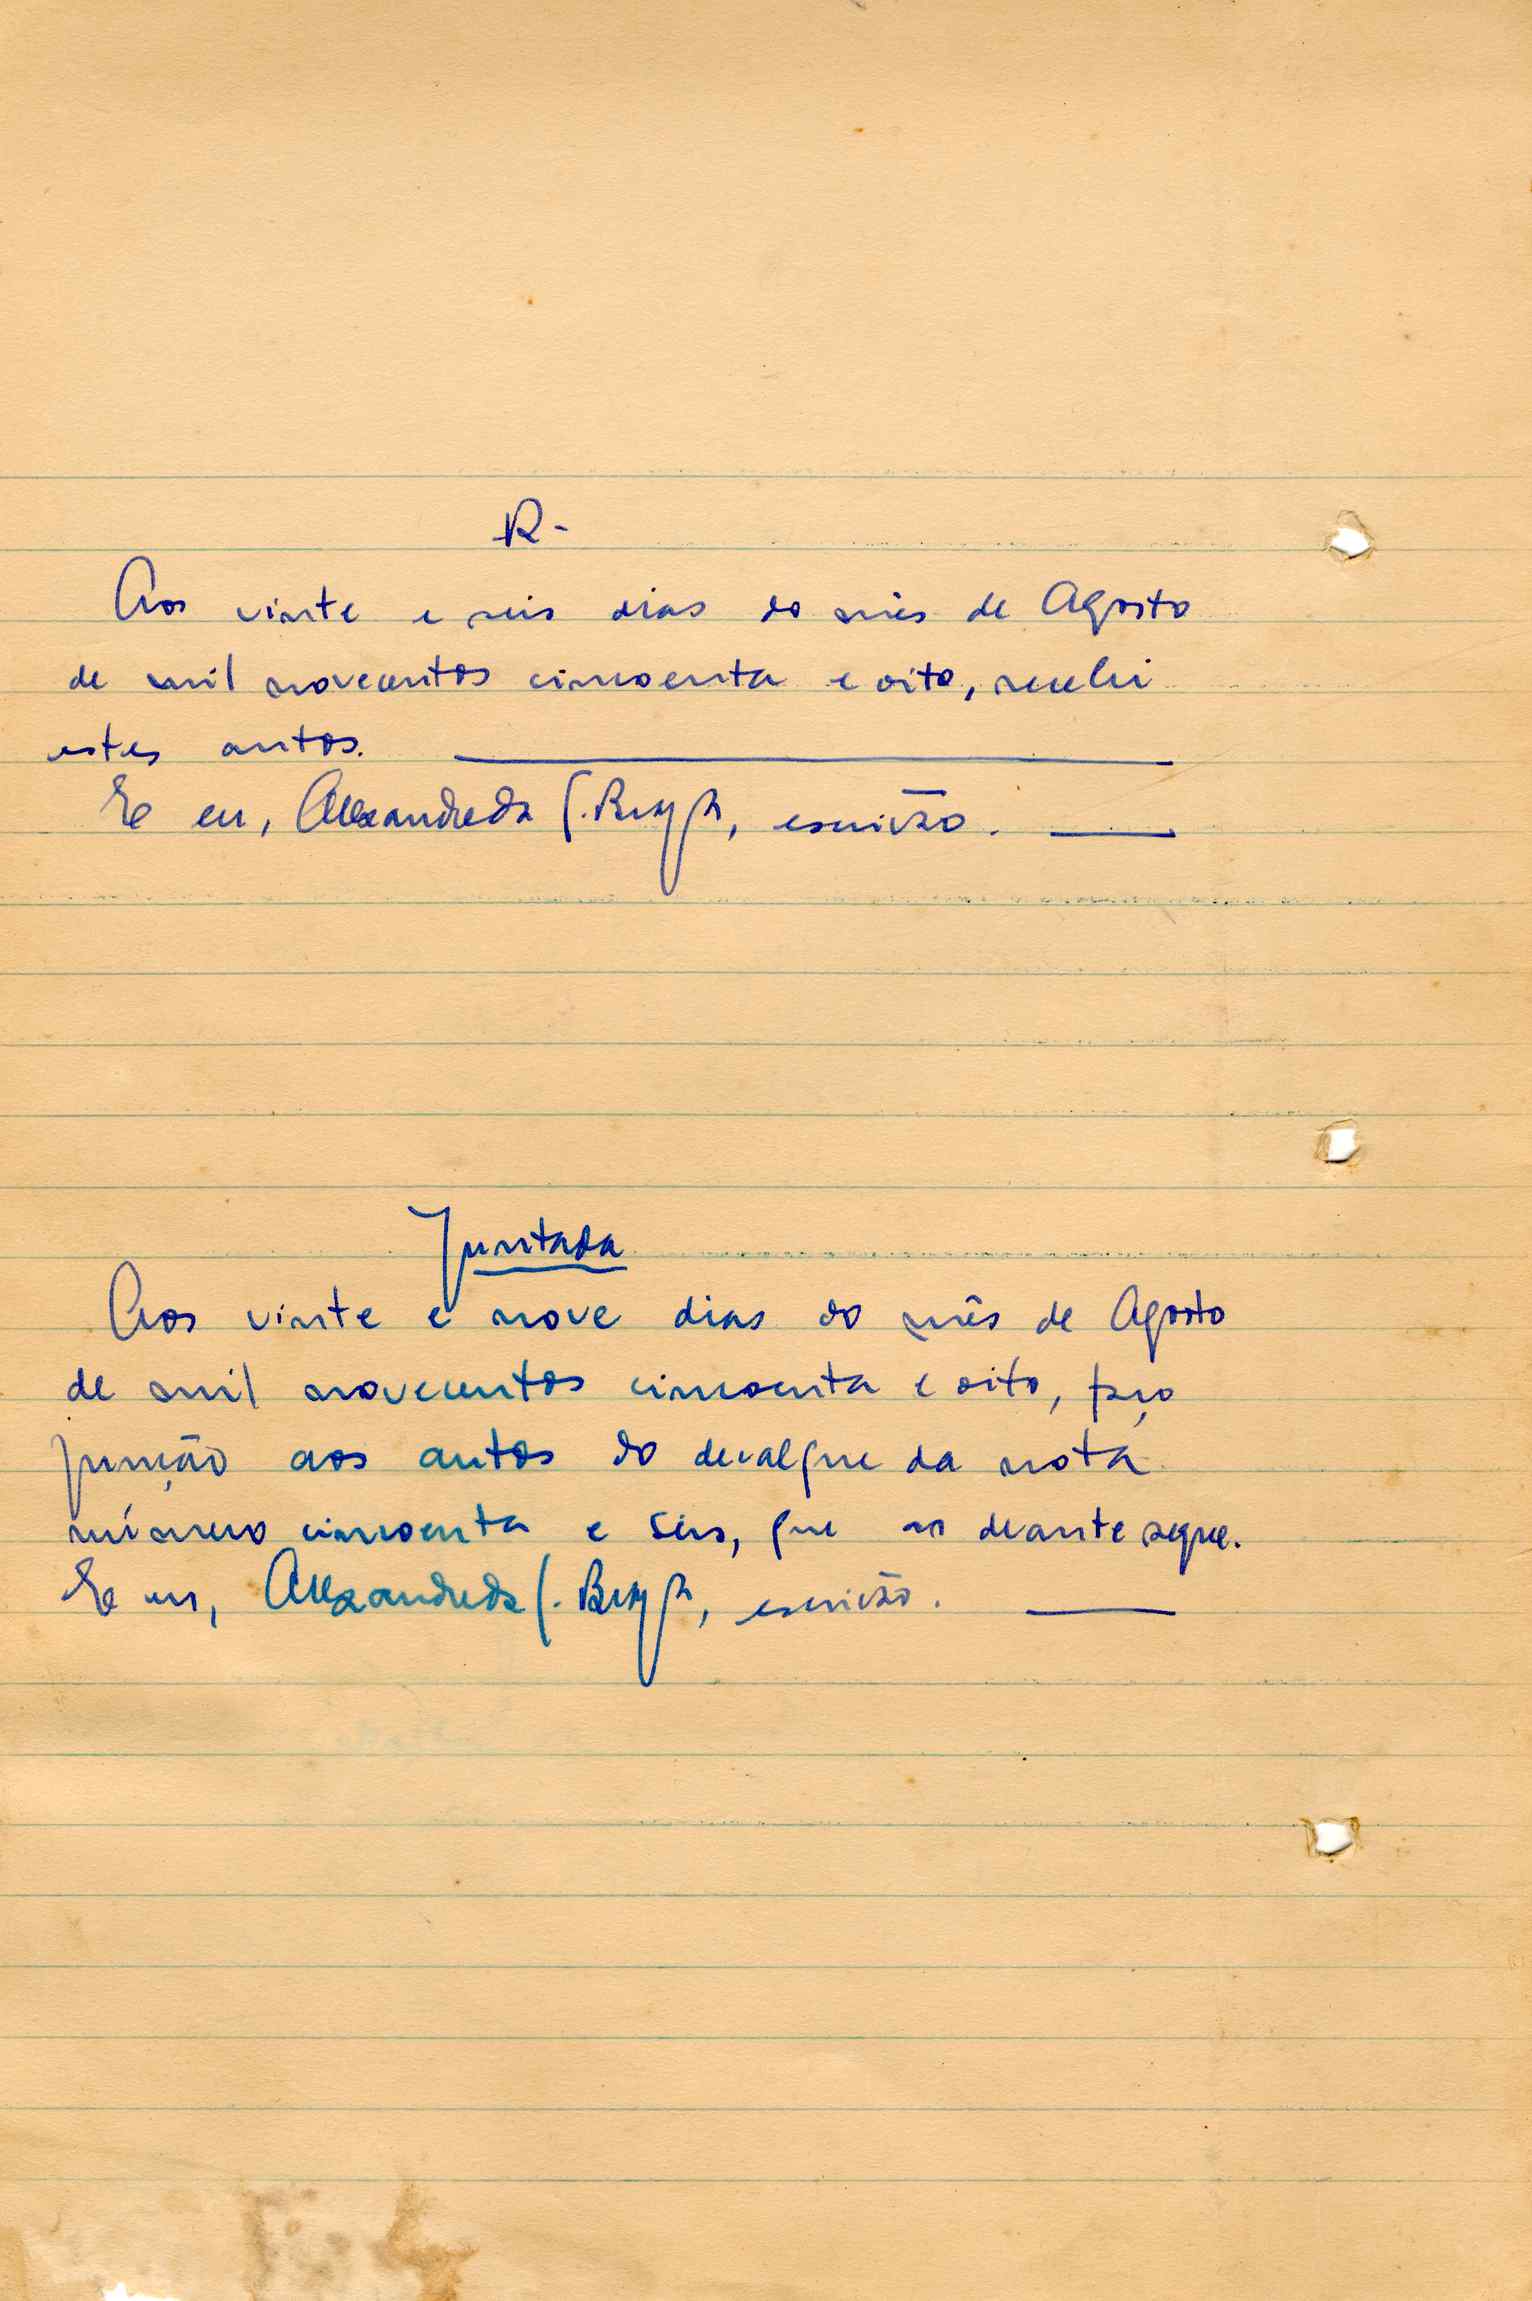 R-
Aos vinte e seis dias do mês de Agosto
de mil novecentos cincoenta e oito, recebi
estes autos.
E eu, Alexandre da, escrivão.
Juntada
Aos vinte e nove dias do mês de Agosto
de mil novecentos cincoenta e oito, faço
junção aos autos do decalque da nota
número cincoenta e seis, que ao deante segue.
E eu, Alexandre da, escrivão.